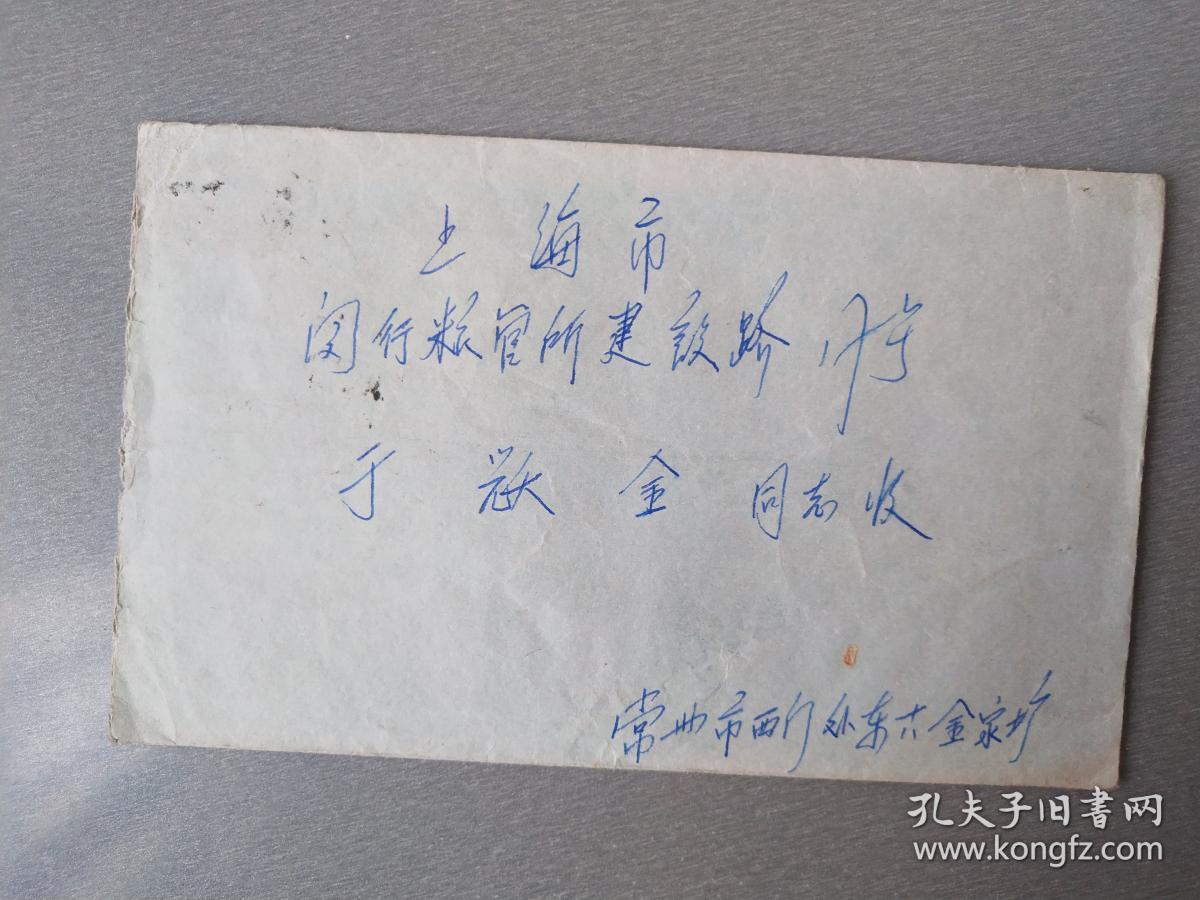 上海市
闵行粮管所建设路号
于金同志收
常州市西门外东六金家圩
孔夫子旧书网
www.kongfz.com